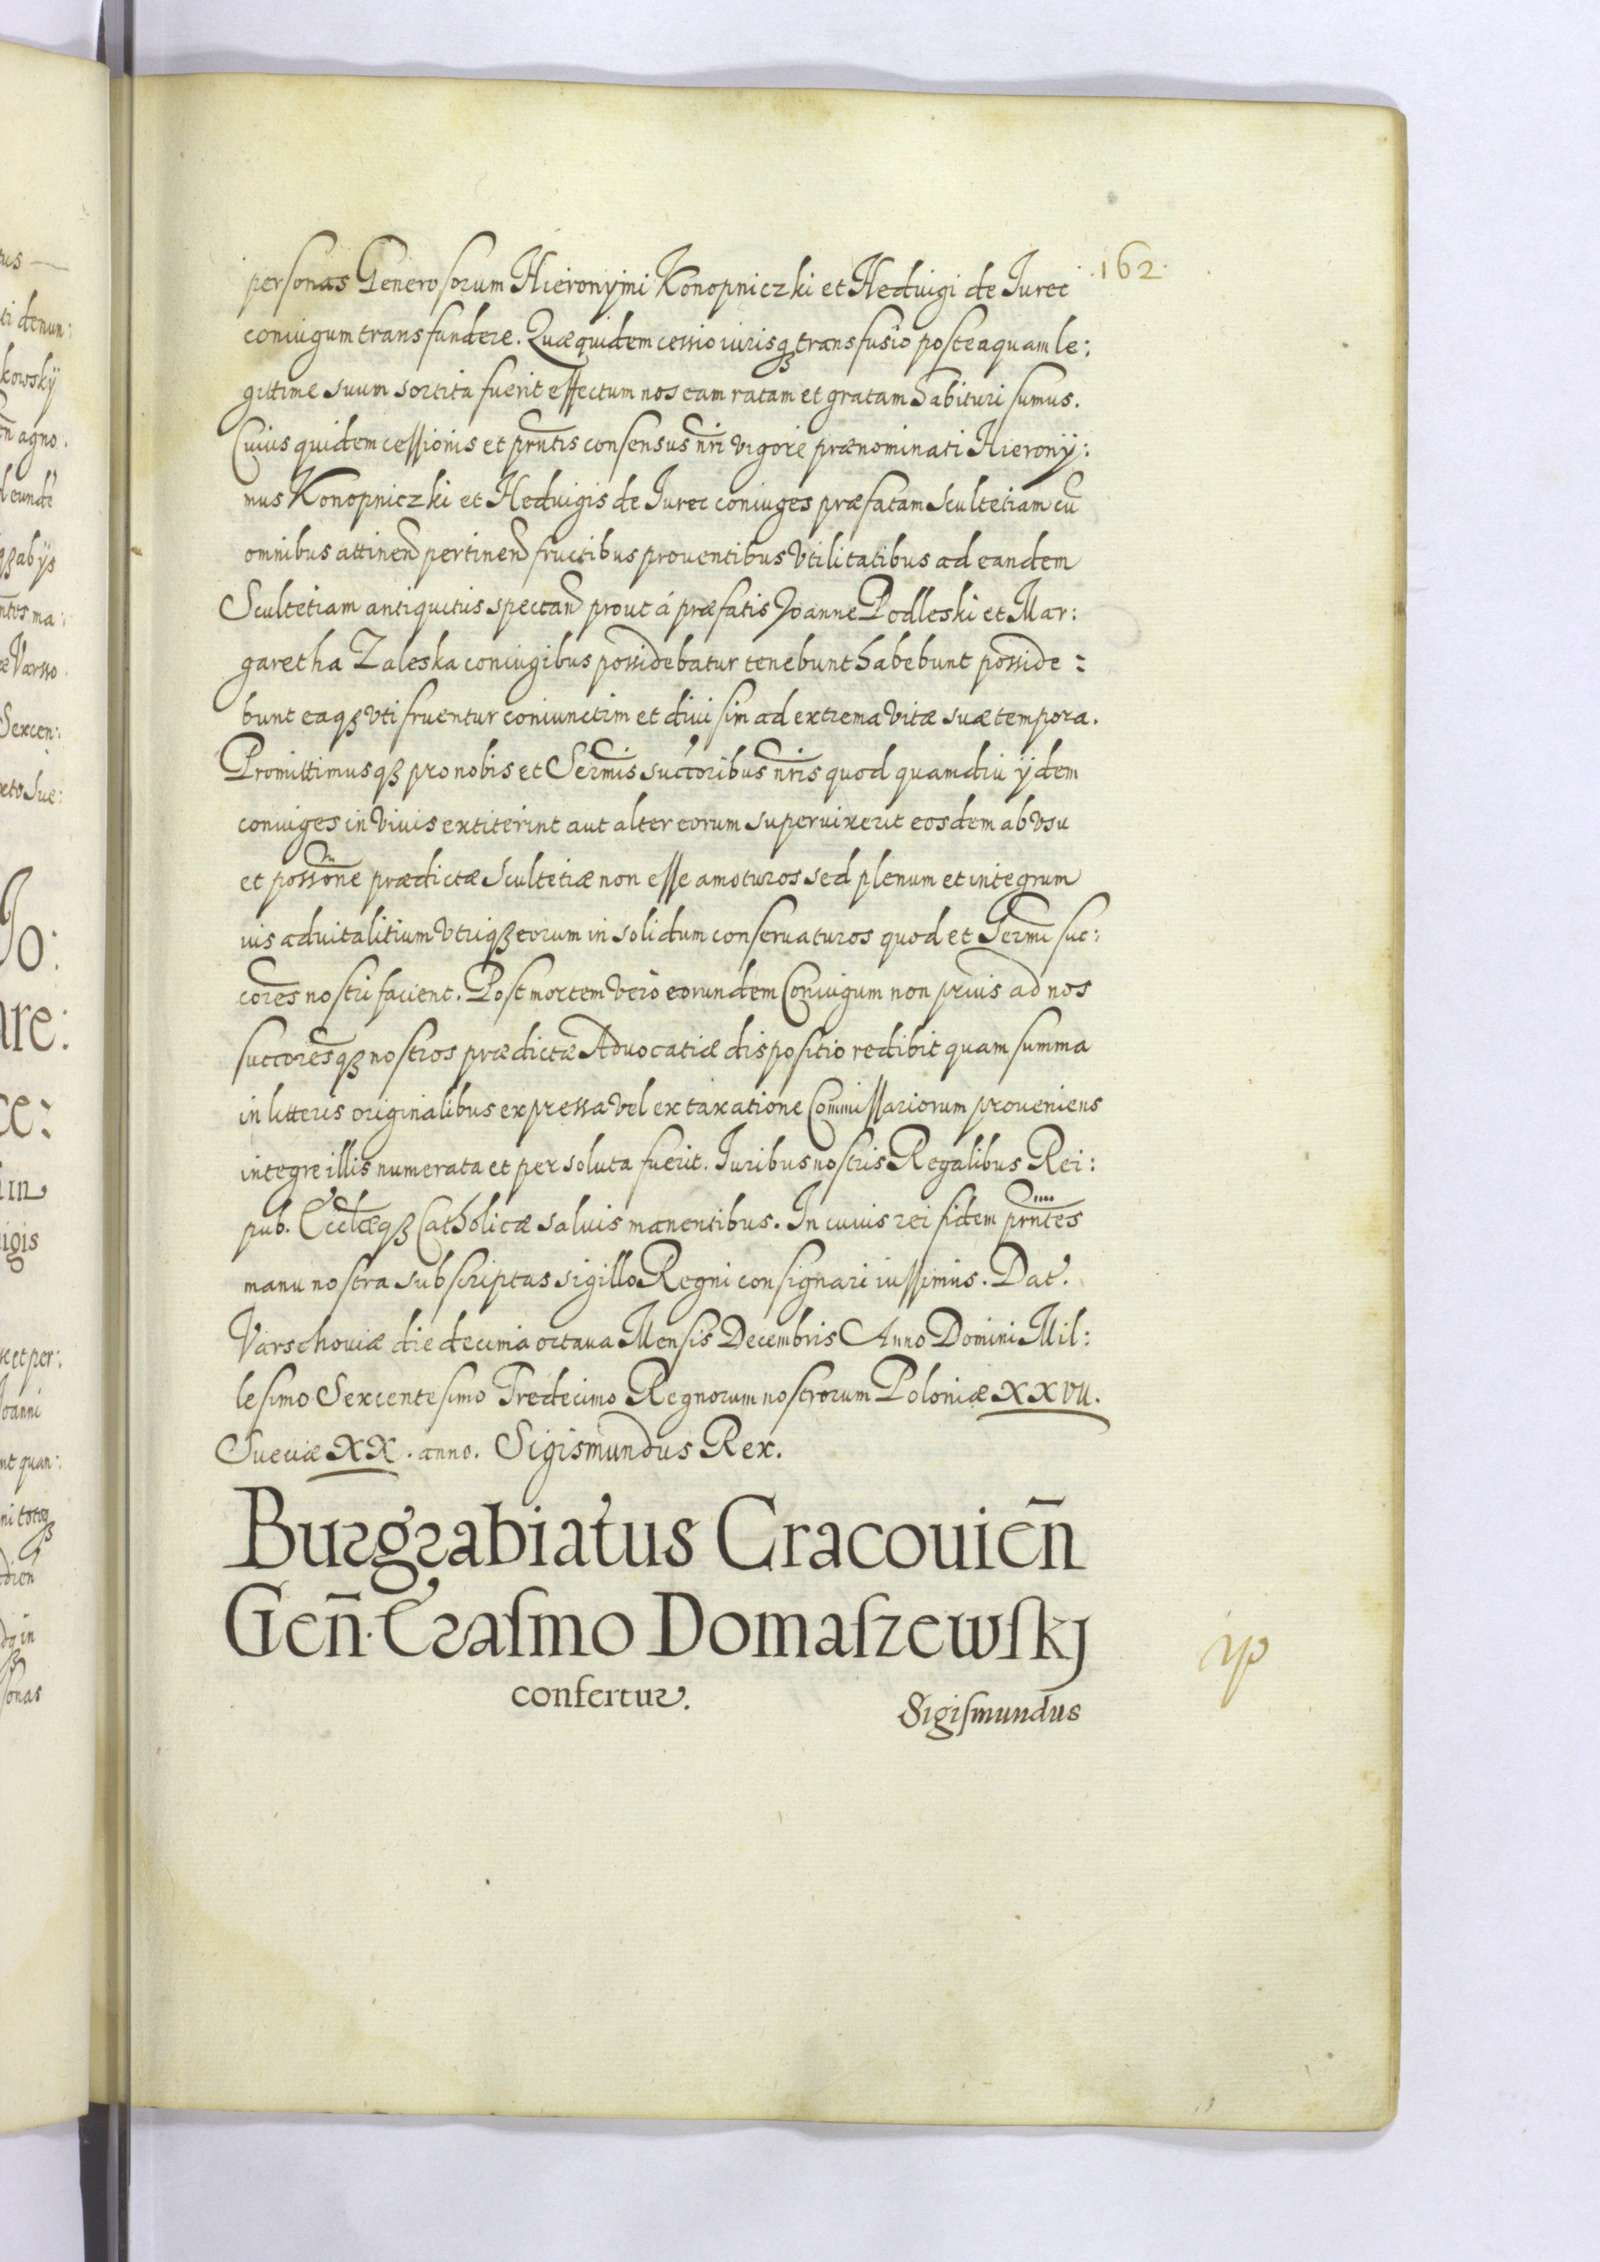 162.
personas Generosorum Hieronymi Konopniczki et Heduigi de Iurec
coniugum transfundere. Quæ quidem cessio iurisqꝫ transfusio posteaquam le:
gittime suum sortita fuerit effectum nos eam ratam et gratam habituri sumus.
Cuius quidem cessionis et pr̄ntis consensus nr̄i vigore prænominati Hierony:
mus Konopniczki et Heduigis de Iurec coniuges præfatam Scultetiam cū
omnibus attinen̄ pertinen̄ fructibus prouentibus vtilitatibus ad eandem
Scultetiam antiquitus spectan̄ prout á præfatis Joanne Podleski et Mar:
garetha Zaleska coniugibus possidebatur tenebunt habebunt posside:
bunt eaqꝫ vti fruentur coniunctim et diuisim ad extrema vitæ suæ tempora.
Promittimusqꝫ pro nobis et Serm̄is succ̄oribus nr̄is quod quamdiu ÿdem
coniuges in viuis extiterint aut alter eorum superuixerit eosdem ab vsu
et possōne prædictæ Scultetiæ non esse amoturos sed plenum et integrum
ius aduitalitium vtriqꝫ eorum in solidum conseruaturos quod et Serm̄i suc:
cores̄ nostri facient. Post mortem vero eorundem Coniugum non prius ad nos
succores̄qꝫ nostros prædictæ Aduocatiæ dispositio redibit quam summa
in litteris originalibus expressa vel ex taxatione Commissariorum proueniens
integre illis numerata et persoluta fuerit. Iuribus nostris Regalibus Rei:
pub. Eccl̄æqꝫ Catholicæ saluis manentibus. In cuius rei fidem pr̄ntes
manu nostra subscriptas sigillo Regni consignari iussimus. Dat.
Varschouiæ die decima octaua Mensis Decembris Anno Domini Mil:
lesimo Sexcentesimo Tredecimo Regnorum nostrorum Poloniæ XXVII.
Sueciæ XX. anno. Sigismundus Rex.
Burgrabiatus Cracouien̄
Gen̄. Erasmo Domaszewskj
confertur.
Sigismundus